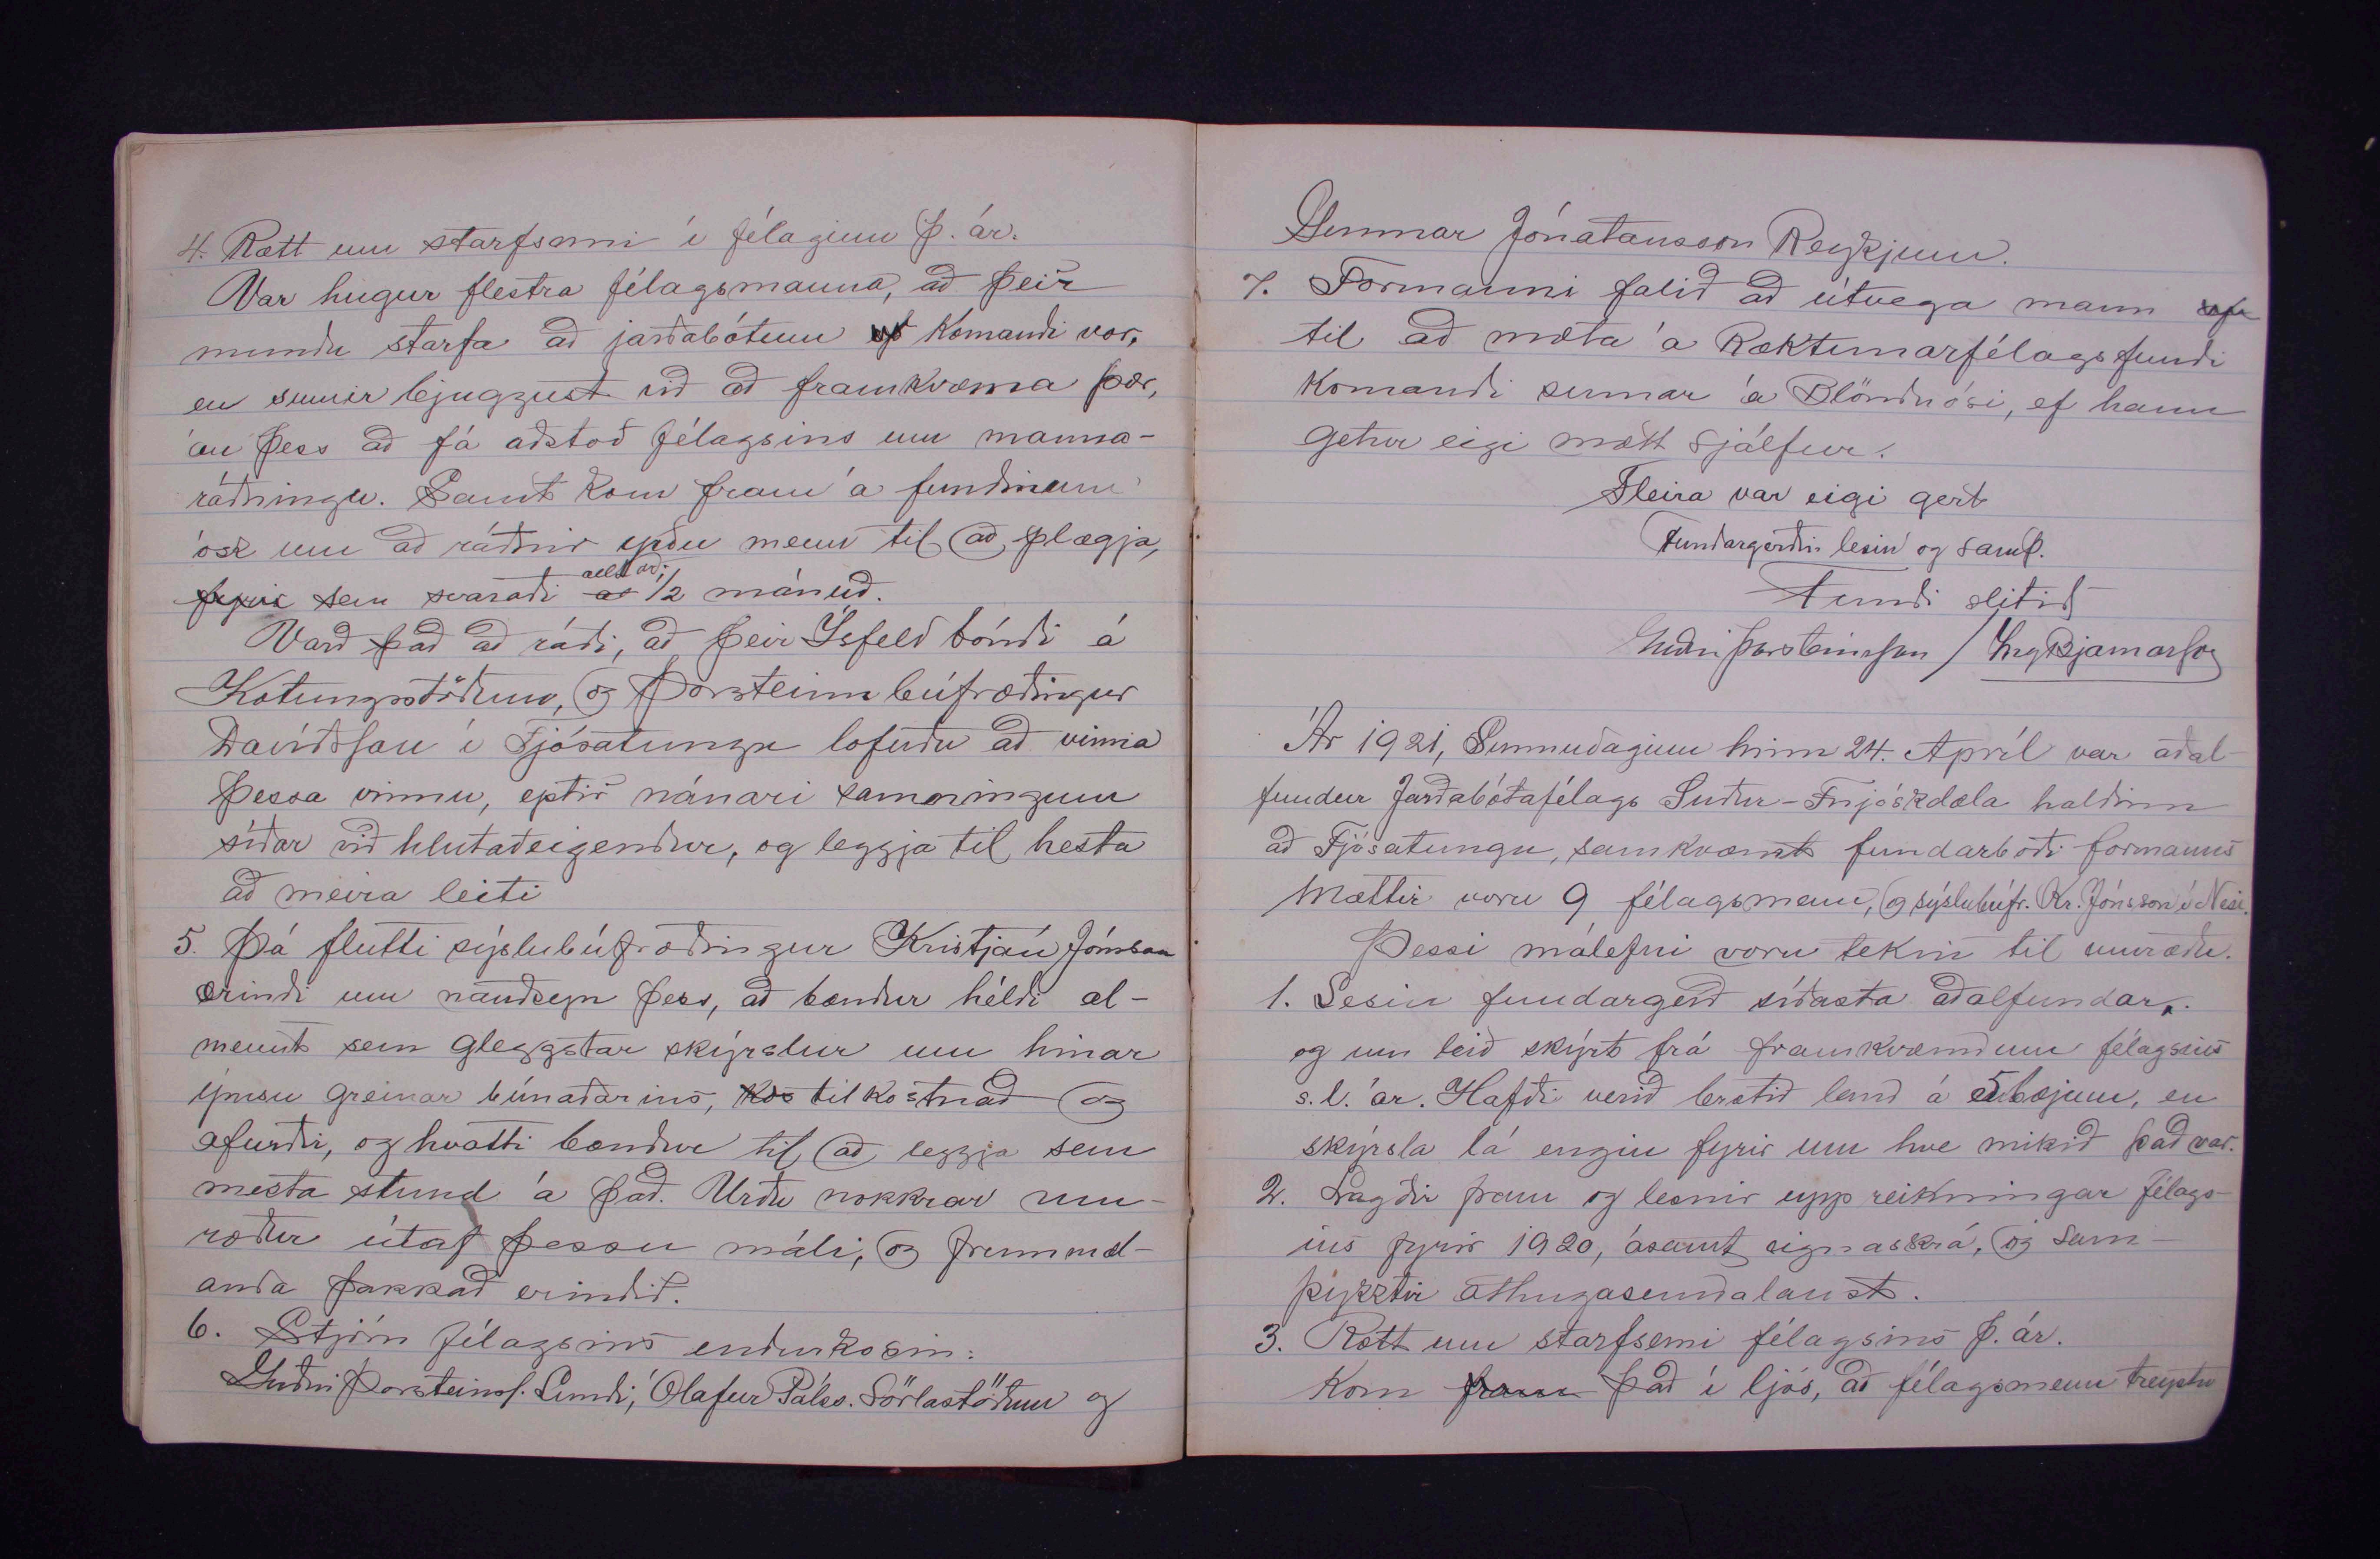 4. Rætt um starfsemi í félaginu þ. ár.
Var hugur flestra félagsmanna, að þeir
mundu starfa að jarðabótum komandi vor,
en sumir bjuggust við að framkvæma þær,
án þess að fá aðstoð félagsins um manna-
ráðningu. Samt kom fram á fundinum
ósk um að ráðnir yrðu menn til að plægja,
fyrir sem svaraði at allt að 1/2 mánuð.
Varð það að ráði, að þeir Ísfeld bóndi á
Kotungsstöðum, og Þorsteinn búfræðingur
Davíðsson í Fjósatungu lofuðu að vinna
þessa vinnu, eptir nánari samningum
síðar við hlutaðeigendur, og leggja til hesta
að meira leiti
5. Þá flutti sýslubúfræðingur Kristján Jónsson
erindi um nauðsyn þess, að bændur héldi al-
mennt sem gleggstar skýrslur um hinar
ýmsu greinar búnaðarins, kos tilkostnað og
afurðir, og hvatti bændur til að leggja sem
mesta stund á það. Urðu nokkrar um-
ræður útaf þessu máli, og frummæl-
anda þakkað erindið.
6. Stjórn félagsins endurkosin:
Guðni Þorsteinss. Lundi, Ólafur Pálss. Sörlastöðum og
Gunnar Jónatansson Reykjum.
7. Formanni falið að útvega mann
til að mæta á Ræktunarfélagsfundi
komandi sumar á Blönduósi, ef hann
getur eigi mætt sjálfur.
Fleira var eigi gert
Fundargerðin lesin og samþ.
Fundi slitið
Guðni Þorsteinsson / Ing Bjarnarson
Ár 1921, Sunnudaginn hinn 24. Apríl var aðal-
fundur Jarðabótafélags Suður-Fnjóskdæla haldinn
að Fjósatungu, samkvæmt fundarboði formanns
Mættir voru 9 félagsmenn, og sýslubúfr. Kr. Jónsson í Nesi.
Þessi málefni voru tekin til umræðu.
1. Lesin fundargerð síðasta aðalfundar,
og um leið skýrt frá framkvæmdum félagsins
s.l. ár. Hafði verið brotið land á 5 bæjum, en
skýrsla lá engin fyrir um hve mikið það var.
2. Lagðir fram og lesnir upp reikningar félags-
ins fyrir 1920, ásamt eignaskrá, og sam-
þykktir athugasemdalaust.
3. Rætt um starfsemi félagsins þ. ár.
Kom fram það í ljós, að félagsmenn treystu